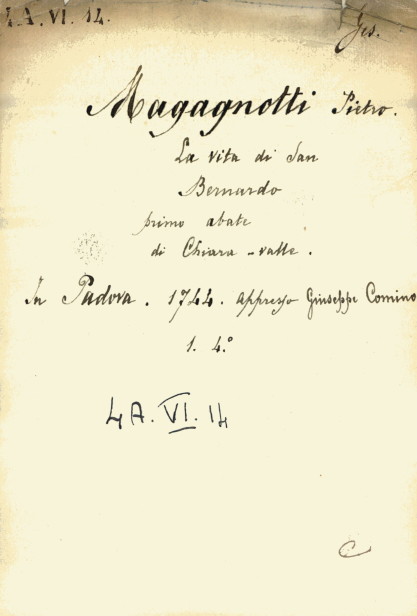 4A.VI.14. Ges.
Magagnotti Pietro.
La vita di San
Bernardo
primo abate
di Chiara-valle.
In Padova. 1744. appresso Giuseppe Comino
1. 4.°
4A.VI.14
C